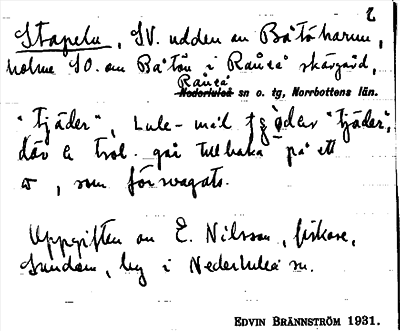 2
Stapeln, SV. udden av Båtöharun,
holme SO. om Båtön i Råneå skärgård,
Råneå
Nederluleå sn o. tg, Norrbottens län.
"tjäder", Lule-mål "tjäder",
där e trol. går tillbaka på ett
som försvagats.
Uppgiften av E. Nilsson, fiskare,
Sundom, by i Nederluleå sn.
EDVIN BRÄNNSTRÖM 1931.